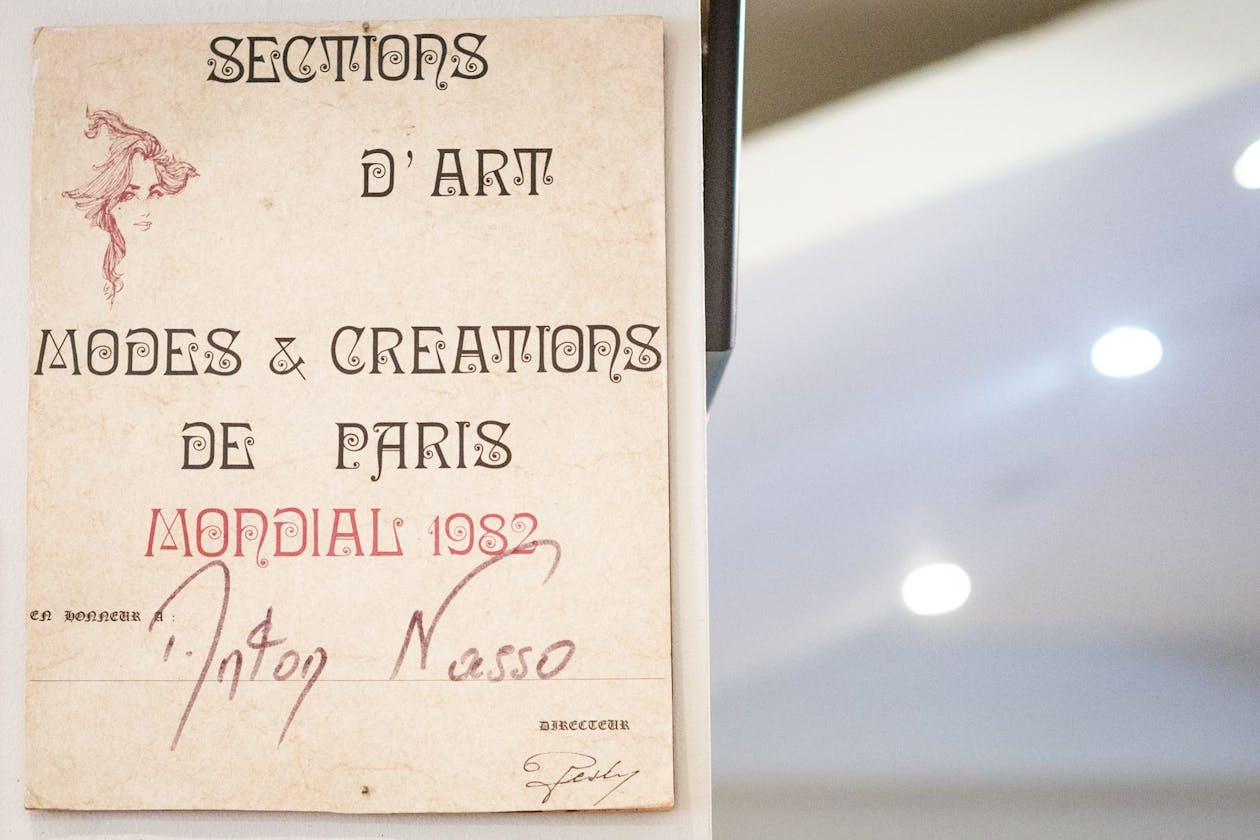 SECTIONS
D'ART
MODES & CREATIONS
DE PARIS
MONDIAL 1982
EN HONNEUR A :
Anton Nasso
DIRECTEUR